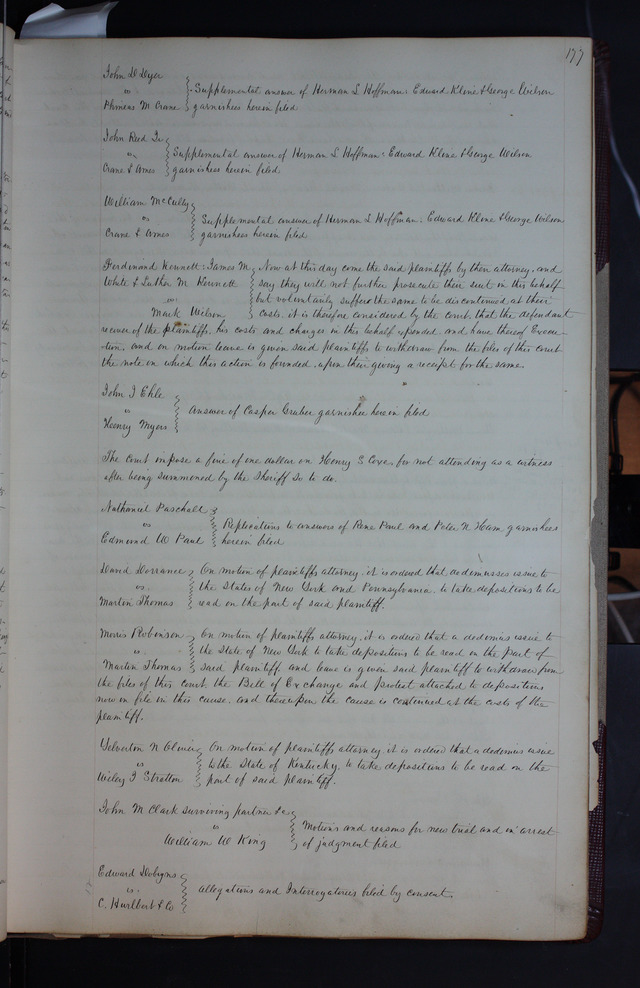 177
John D Dyer
vs
Phineas M Crane
Supplemental answer of Herman L Hoffman, Edward Klone & George Wilson
garnishees herein filed
John Reed Jr
vs
Crane & Ames
Supplemental answer of Herman L Hoffman, Edward Klone & George Wilson
garnishees herein filed
William McCully
vs
Crane & Ames
Supplemental answer of Herman L Hoffman, Edward Klone & George Wilson
garnishees herein filed
Ferdinand Kennett, James M
White & Luther M Kennett
vs
Mark Wilson
Now at this day come the said plaintiffs by their attorney, and
say they will not further prosecute their suit in this behalf
but voluntarily suffer the same to be discontinued at their
costs, it is therefore considered by the court, that the defendant
recover of the plaintiffs, his costs and charges in this behalf expended, and have thereof Execu-
tion, and on motion leave is given said plaintiffs to withdraw from the files of this court
the note on which this action is founded, upon their giving a receipt for the same.
John J Ehle
vs
Henry Myers
Answer of Casper Gruber garnishee herein filed
The court impose a fine of one dollar on Henry S Coxe, for not attending as a witness
after being summoned by the Sheriff so to do.
Nathaniel Paschall
vs
Edmond W Paul
Replications to answers of Rene Paul and Peter N Ham garnishees
herein filed
David Dorrance
vs
Martin Thomas
On motion of plaintiffs attorney, it is ordered that dedimusses issue to
the States of New York and Pennsylvania, to take depositions to be
read on the part of said plaintiff.
Morris Robinson
vs
Martin Thomas
On motion of plaintiffs attorney, it is ordered that a dedimus issue to
the State of New York to take depositions to be read on the part of
said plaintiff and leave is given said plaintiff to withdraw from
the files of this court, the Bill of Exchange and protest attached to depositions
now on file in this cause, and thereupon the cause is continued at the costs of the
plaintiff.
Yelverton N Oliver
vs
Wiley J Stratton
On motion of plaintiffs attorney, it is ordered that a dedimus issue
to the State of Kentucky, to take depositions to be read on the
part of said plaintiff.
John M Clark surviving partner &c
vs
William W King
Motions and reasons for new trial and in arrest
of judgment filed
Edward Dobyns
vs
C. Hurlbert & Co
Allegations and Interrogatories filed by consent.